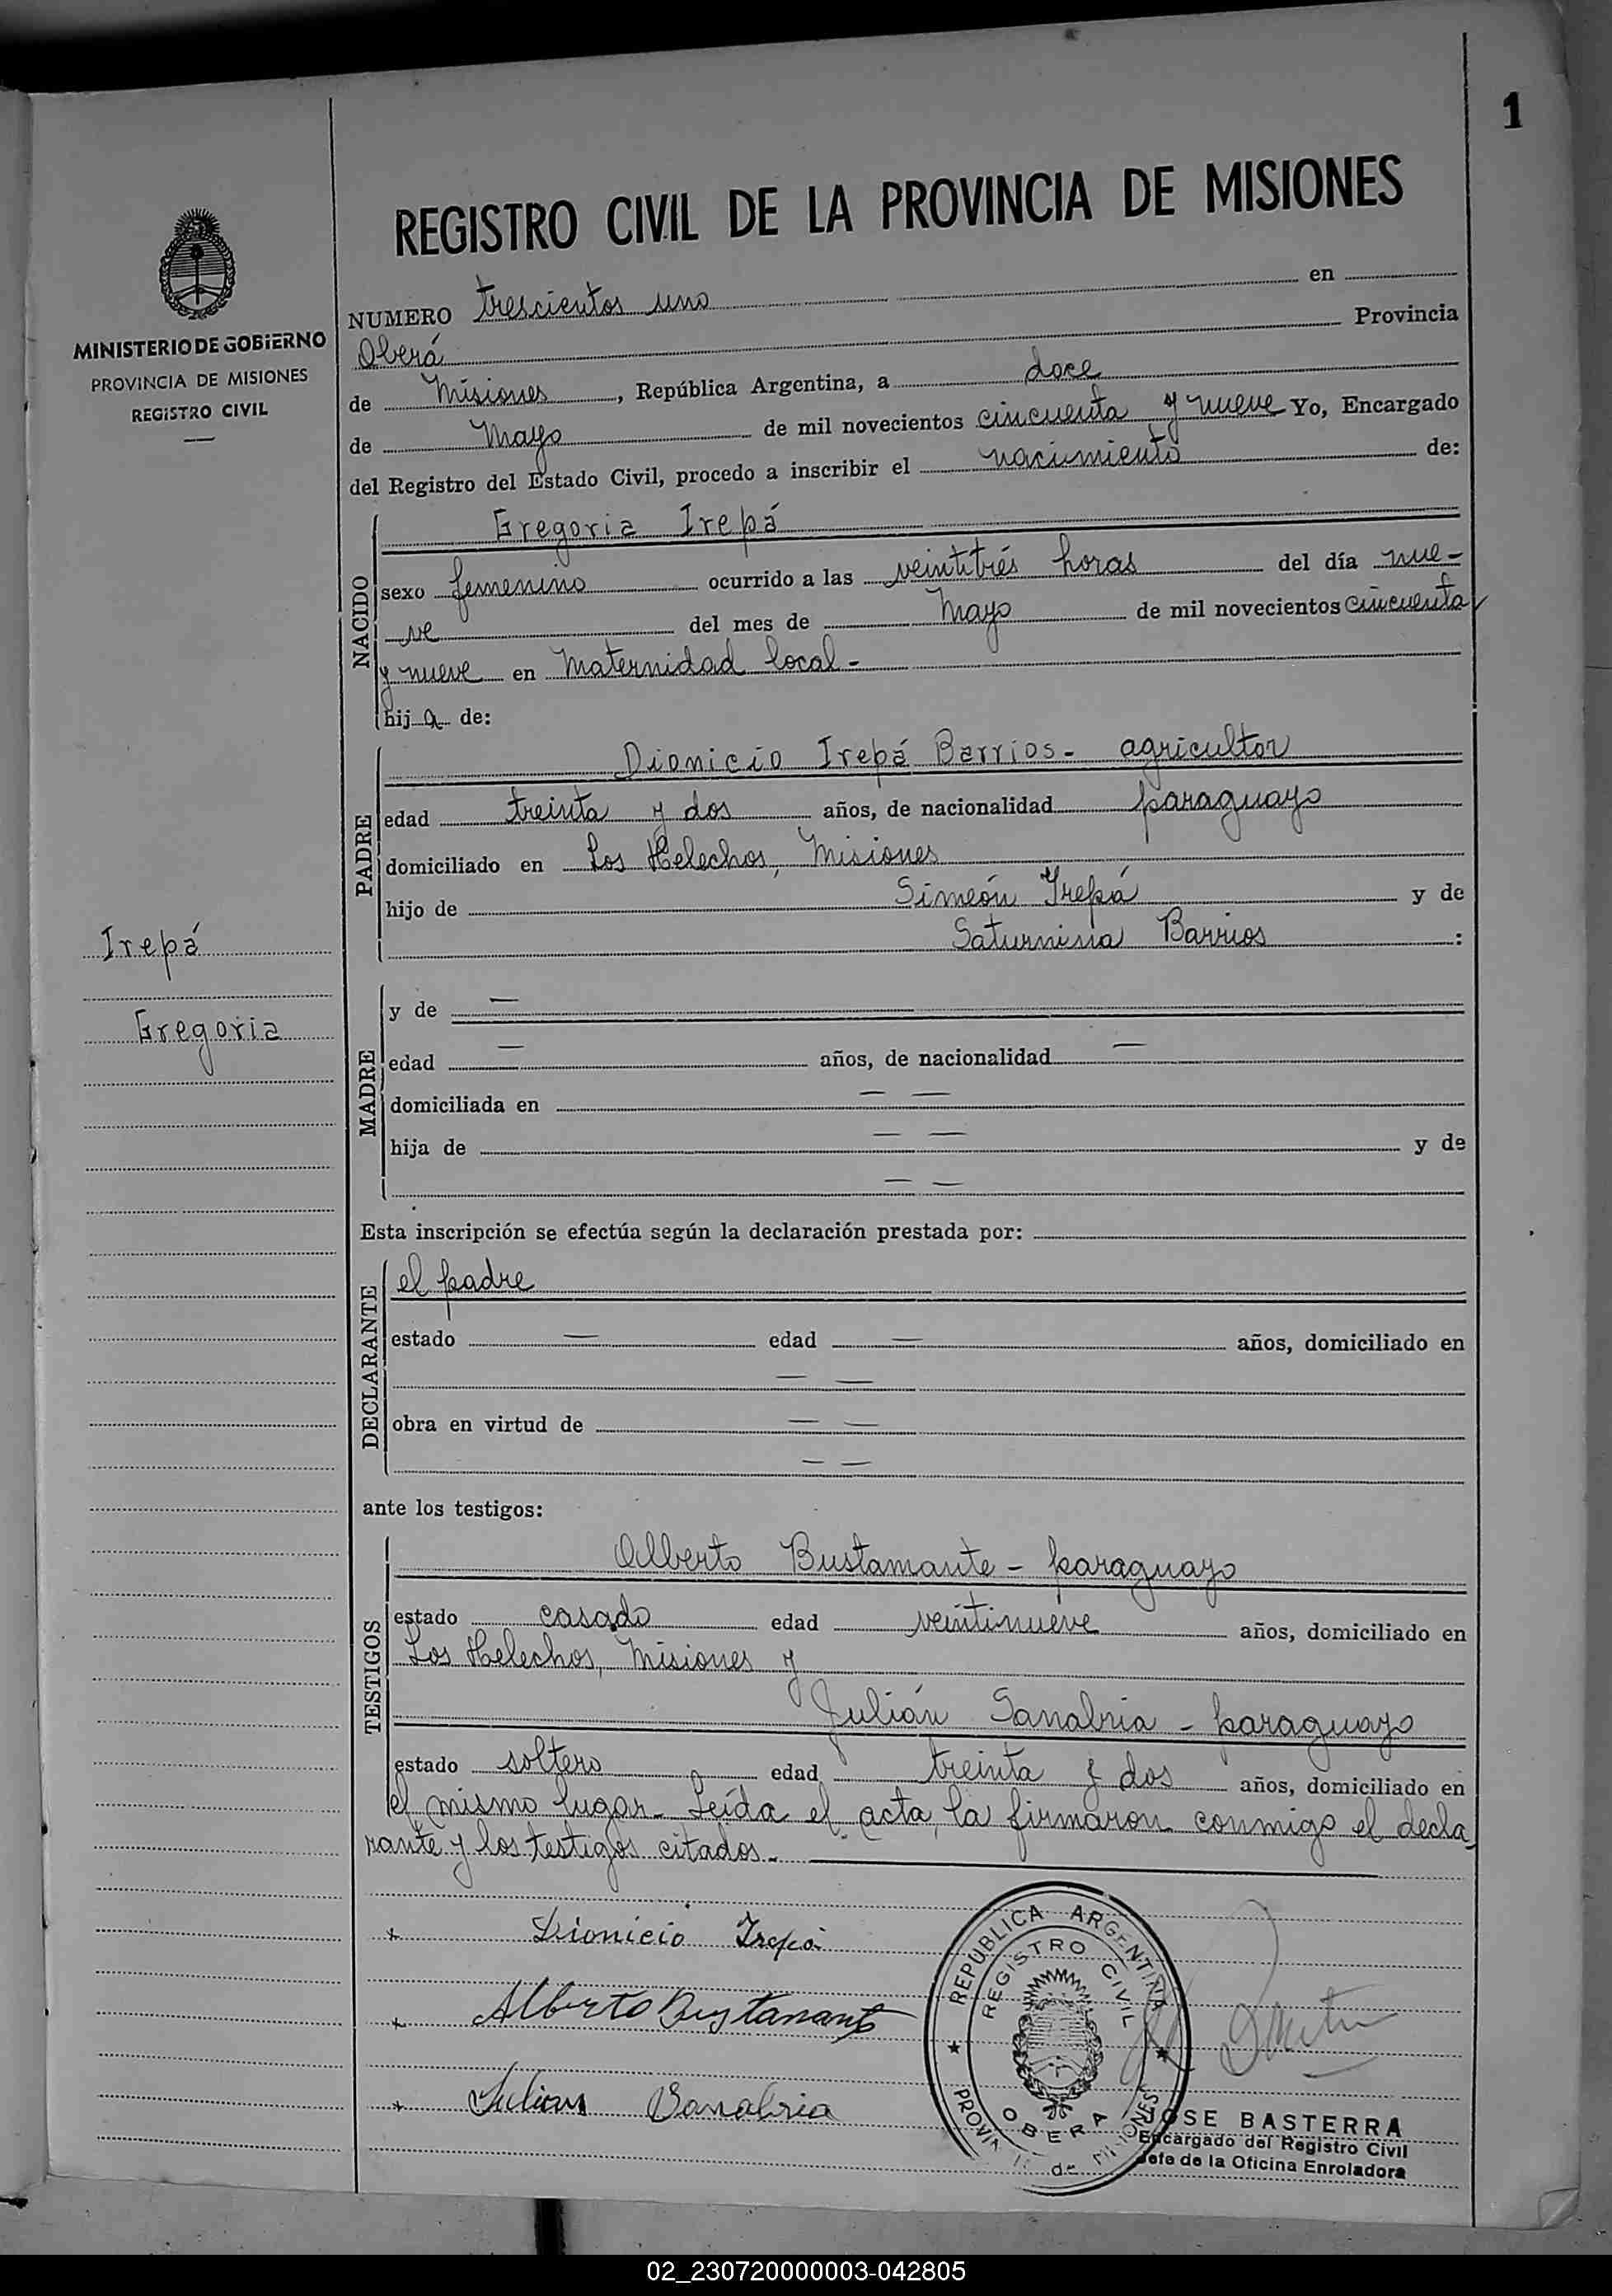 1
REGISTRO CIVIL DE LA PROVINCIA DE MISIONES
MINISTERIO DE GOBIERNO
PROVINCIA DE MISIONES
REGISTRO CIVIL
NUMERO trescientos uno en
Oberá Provincia
de Misiones, República Argentina, a doce
de Mayo de mil novecientos cincuenta y nueve Yo, Encargado
del Registro del Estado Civil, procedo a inscribir el nacimiento de:
NACIDO
Gregoria Irepá
sexo femenino ocurrido a las veintitrés horas del día nue-
ve del mes de Mayo de mil novecientos cincuenta
y nueve en Maternidad local -
hij a de:
PADRE
Dionicio Irepá Barrios - agricultor
edad treinta y dos años, de nacionalidad paraguayo
domiciliado en Los Helechos, Misiones
hijo de Simeón Irepá y de
Saturnina Barrios :
Irepá
Gregoria
MADRE
y de —
edad — años, de nacionalidad —
domiciliada en — —
hija de — — y de
— —
Esta inscripción se efectúa según la declaración prestada por:
DECLARANTE
el padre
estado — edad — años, domiciliado en
— —
obra en virtud de — —
— —
ante los testigos:
TESTIGOS
Alberto Bustamante - paraguayo
estado casado edad veintinueve años, domiciliado en
Los Helechos, Misiones y
Julián Sanabria - paraguayo
estado soltero edad treinta y dos años, domiciliado en
el mismo lugar - Leída el acta, la firmaron conmigo el decla
rante y los testigos citados.-
+ Dionicio Irepá
+ Alberto Bustamante
+ Julian Sanabria
REPÚBLICA ARGENTINA
REGISTRO CIVIL
OBERA
PROVINCIA de MISIONES
JOSE BASTERRA
Encargado del Registro Civil
Jefe de la Oficina Enroladora
02_230720000003-042805